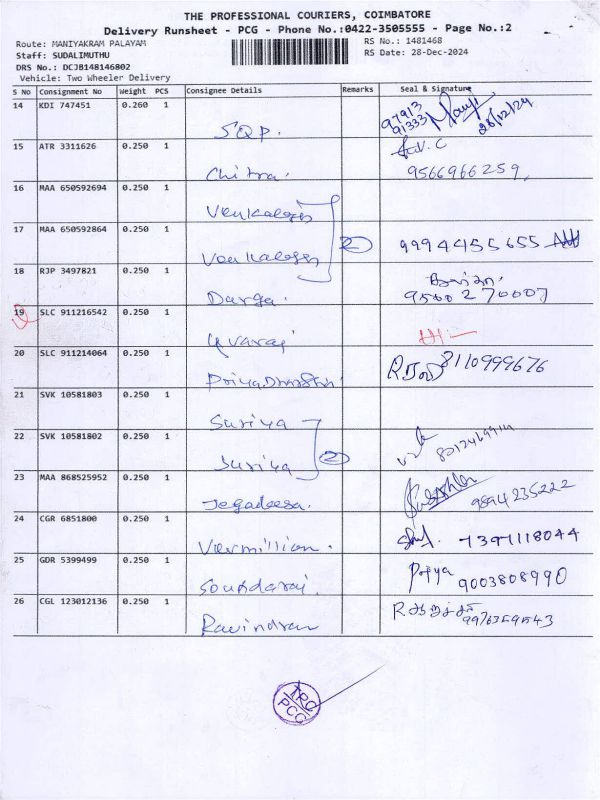 THE PROFESSIONAL COURIERS, COIMBATORE
Delivery Runsheet - PCG - Phone No.:0422-3505555 - Page No.:2
Route: MANIYAKRAM PALAYAM
RS No.: 1481468
Staff: SUDALIMUTHU
RS Date: 28-Dec-2024
DRS No.: DCJB148146802
Vehicle: Two Wheeler Delivery
S No Consignment No Weight PCS Consignee Details Remarks Seal & Signature
14 KDI 747451 0.260 1 SQP. 97913 91333 28/12/24
15 ATR 3311626 0.250 1 Chitra. 9566966259,
16 MAA 650592694 0.250 1 Venkalesis
17 MAA 650592864 0.250 1 Venkalesis 2 9994455655
18 RJP 3497821 0.250 1 Darga. 9500270007
19 SLC 911216542 0.250 1 Yuvaraj
20 SLC 911214064 0.250 1 Priyadharshi. 8110999676
21 SVK 10581803 0.250 1 Suriya
22 SVK 10581802 0.250 1 Suriya 2
23 MAA 868525952 0.250 1 Jegadeesa. 9894235222
24 CGR 6851800 0.250 1 Vermillion. 7397118044
25 GDR 5399499 0.250 1 Soundaraj. Priya 9003808990
26 CGL 123012136 0.250 1 Ravindran 9976359543
TPC
PCG